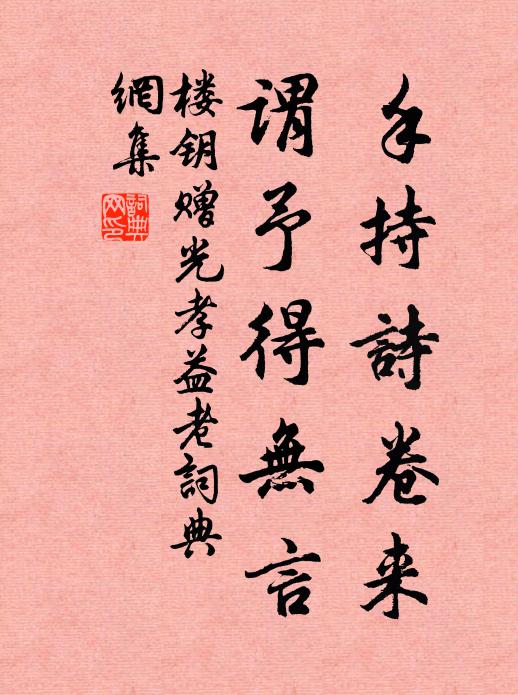 手持詩卷来
謂予得無言
楼钥赠光孝益老詞典
網集
詞典網印